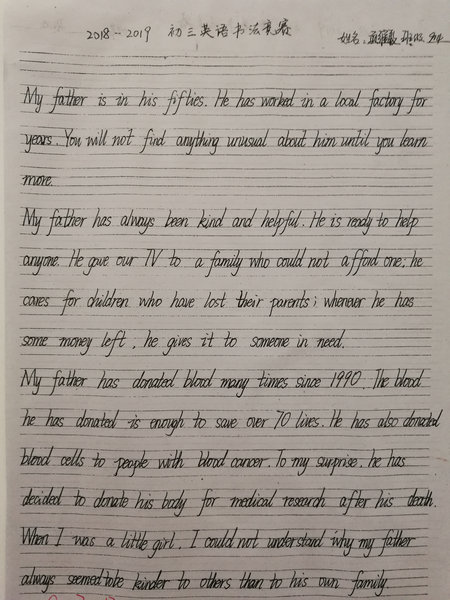 2018-2019 初三英语书法竞赛 姓名: 班级:
My father is in his fifties. He has worked in a local factory for
years. You will not find anything unusual about him until you learn
more.
My father has always been kind and helpful. He is ready to help
anyone. He gave our TV to a family who could not afford one; he
cares for children who have lost their parents; whenever he has
some money left, he gives it to someone in need.
My father has donated blood many times since 1990. The blood
he has donated is enough to save over 70 lives. He has also donated
blood cells to people with blood cancer. To my surprise, he has
decided to donate his body for medical research after his death.
When I was a little girl, I could not understand why my father
always seemed to be kinder to others than to his own family.